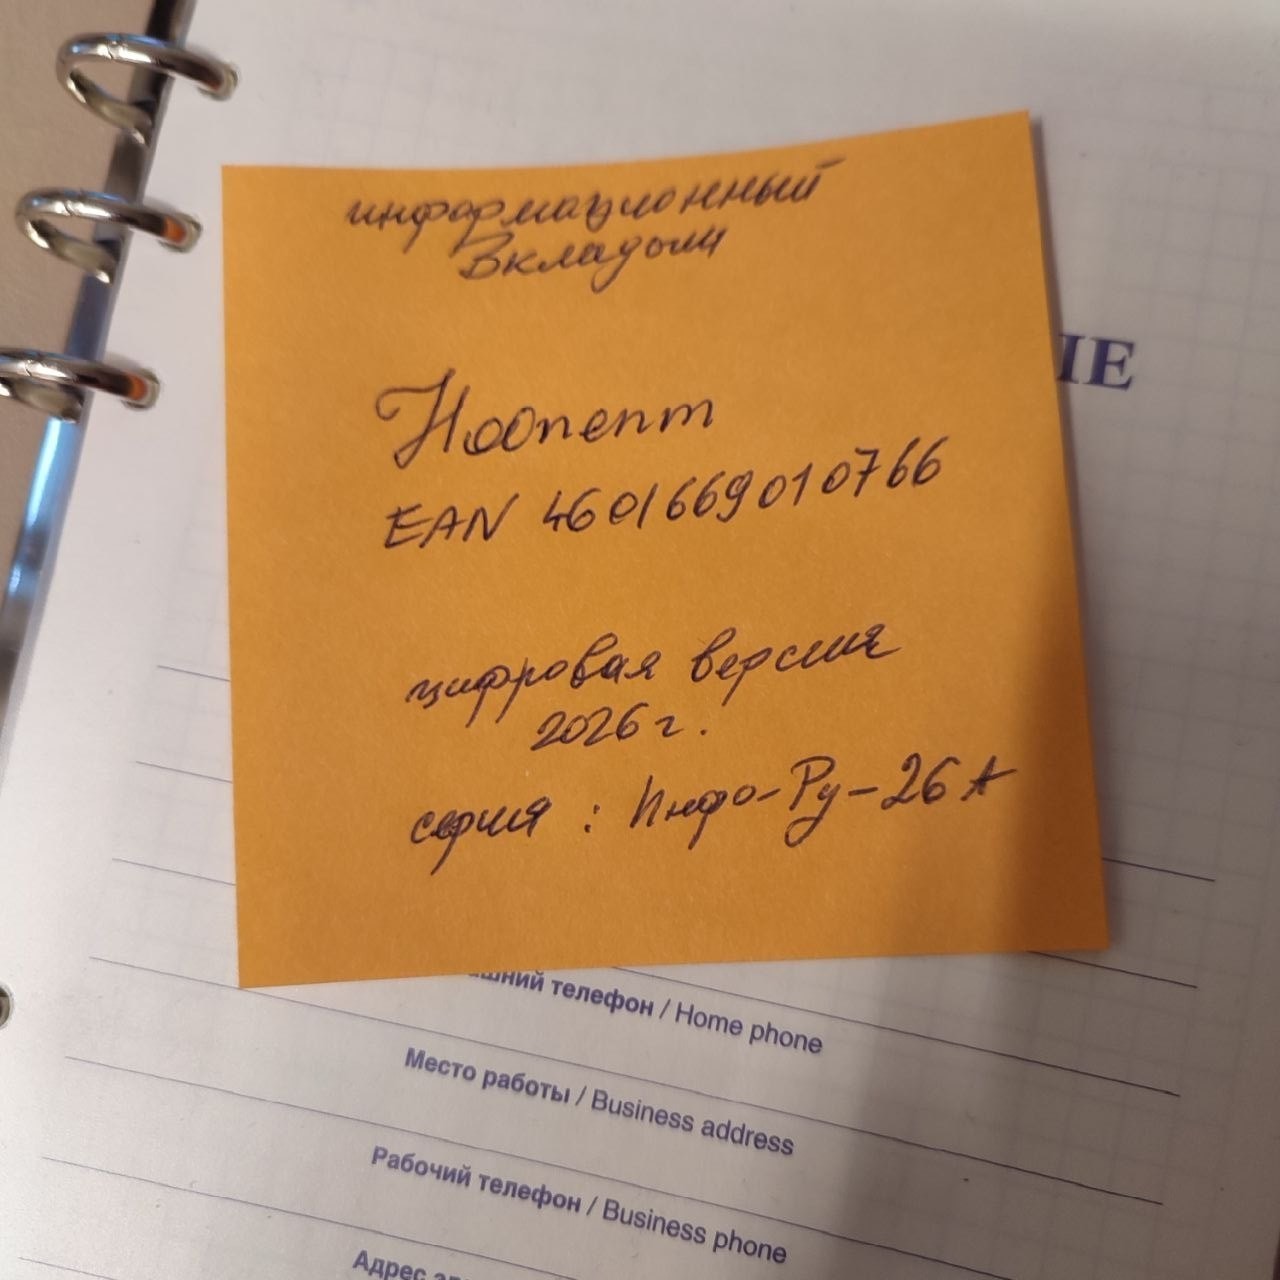 информационный
Вкладыш
Ноопепт
EAN 4601669010766
цифровая версия
2026 г.
серия : Инфо-Ру-26 А
IE
шний телефон / Home phone
Место работы / Business address
Рабочий телефон / Business phone
Адрес